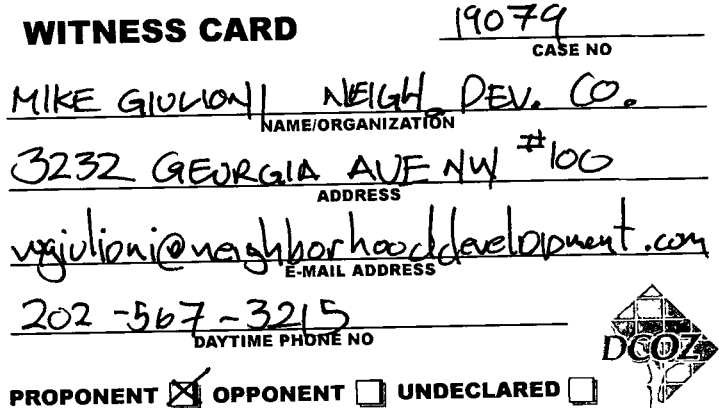 WITNESS CARD
19079
CASE NO
MIKE GIULIONI NEIGH. DEV. CO.
NAME/ORGANIZATION
3232 GEORGIA AVE NW #100
ADDRESS
mgiulioni@neighborhooddevelopment.com
E-MAIL ADDRESS
202-567-3215
DAYTIME PHONE NO
DCOZ
PROPONENT ☒ OPPONENT ☐ UNDECLARED ☐